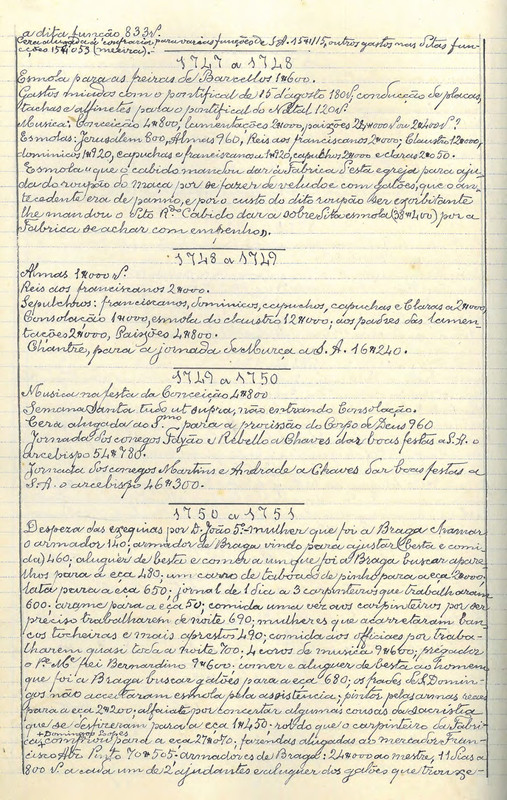 a dita função 833 v.
Cera alugada á confraria para varias funções de S.A. 15#115, outros gastos nas ditas fun-
ções 15#053 (mezeira).-
1747 a 1748
Esmola para as freiras de Barcellos 1#600.
Gastos miudos com o pontifical de 15 d'agosto 180 v., conducção de placas,
tachas e alfinetes para o pontifical do Natal 120 v.
Musica: Conceição 4#800, lamentações 2#000, paixões 24#000 v. ou 2#400 v.?
Esmolas: Jerusálem 800, Almas 960, Reis aos franciscanos 2#000; Claustro 12#000,
dominicos 1#920, capuchas e franciscanos 1#920, capuchos 2#000 e claras 2#050.
Esmola "que o cabido mandou dar á Fabrica d'esta egreja para aju-
da do roupão do maça por se fazer de veludo e com galões, que o an-
tecedente era de panno, e por o custo do dito roupão ser exorbitante
lhe mandou o dito Rdo Cabido dar a sobredita esmola (38#400) por a
Fabrica se achar com empenho".
1748 a 1749
Almas 1#000 v.
Reis aos franciscanos 2#000.
Sepulchros: franciscanos, dominicos, capuchos, capuchas e Claras a 2#000,
Consolação 1#000, esmola do claustro 12#000; aos padres das lamen-
tações 2#000, Paixões 4#800.
Chantre, para a jornada de Murça a S. A. 16#240.
1749 a 1750
Musica na festa da Conceição 4#800
Semana Santa tudo ut supra, não entrando Consolação.
Cera alugada ao Smo para a procissão do Corpo de Deus 960
Jornada dos conegos Feijão e Rebello a Chaves dar boas festas a S.A. o
arcebispo 54#780.
Jornada dos conegos Martins e Andrade a Chaves dar boas festas a
S.A. o arcebispo 46#300.
1750 a 1751
Despeza das exequias por D. João 5º- mulher que foi a Braga chamar
o armador 140; armador de Braga vindo para ajustar (besta e comi-
da) 460; aluguer de besta e comer a um que foi a Braga buscar apare-
lhos para a eça 480; um carro de taboado de pinho para a eça 2#000;
lata para a eça 650; jornal de 1 dia a 3 carpinteiros que trabalharam
600; arame para a eça 50; comida uma vez aos carpinteiros por ser
preciso trabalharem de noite 690; mulheres que acarretaram ban-
cos tocheiras e mais aprestos 490; comida aos officiaes por traba-
lharem quasi toda a noite 700; 4 coros de musica 9#600; prégador
o Pe Me frei Bernardino 9#600; comer e aluguer de besta ao homem
que foi a Braga buscar galões para a eça 680; os frades de S. Domin-
gos não acceitaram esmola pela assistencia; pintor pelas armas reaes
para a eça 2#200; alfaiate por concertar algumas cousas da sacristia
que se desfizeram para a eça 1#450- rol do que o carpinteiro da Fabri-
+ Domingos Lopes
ca+ comprou para a eça 27#070; fazendas alugadas ao mercador Fran-
cisco Ate Pinto 70#505- armadores de Braga: 24#000 ao mestre, 11 dias a
800 v. a cada um de 2 ajudantes e aluguer dos galões que trouxe-